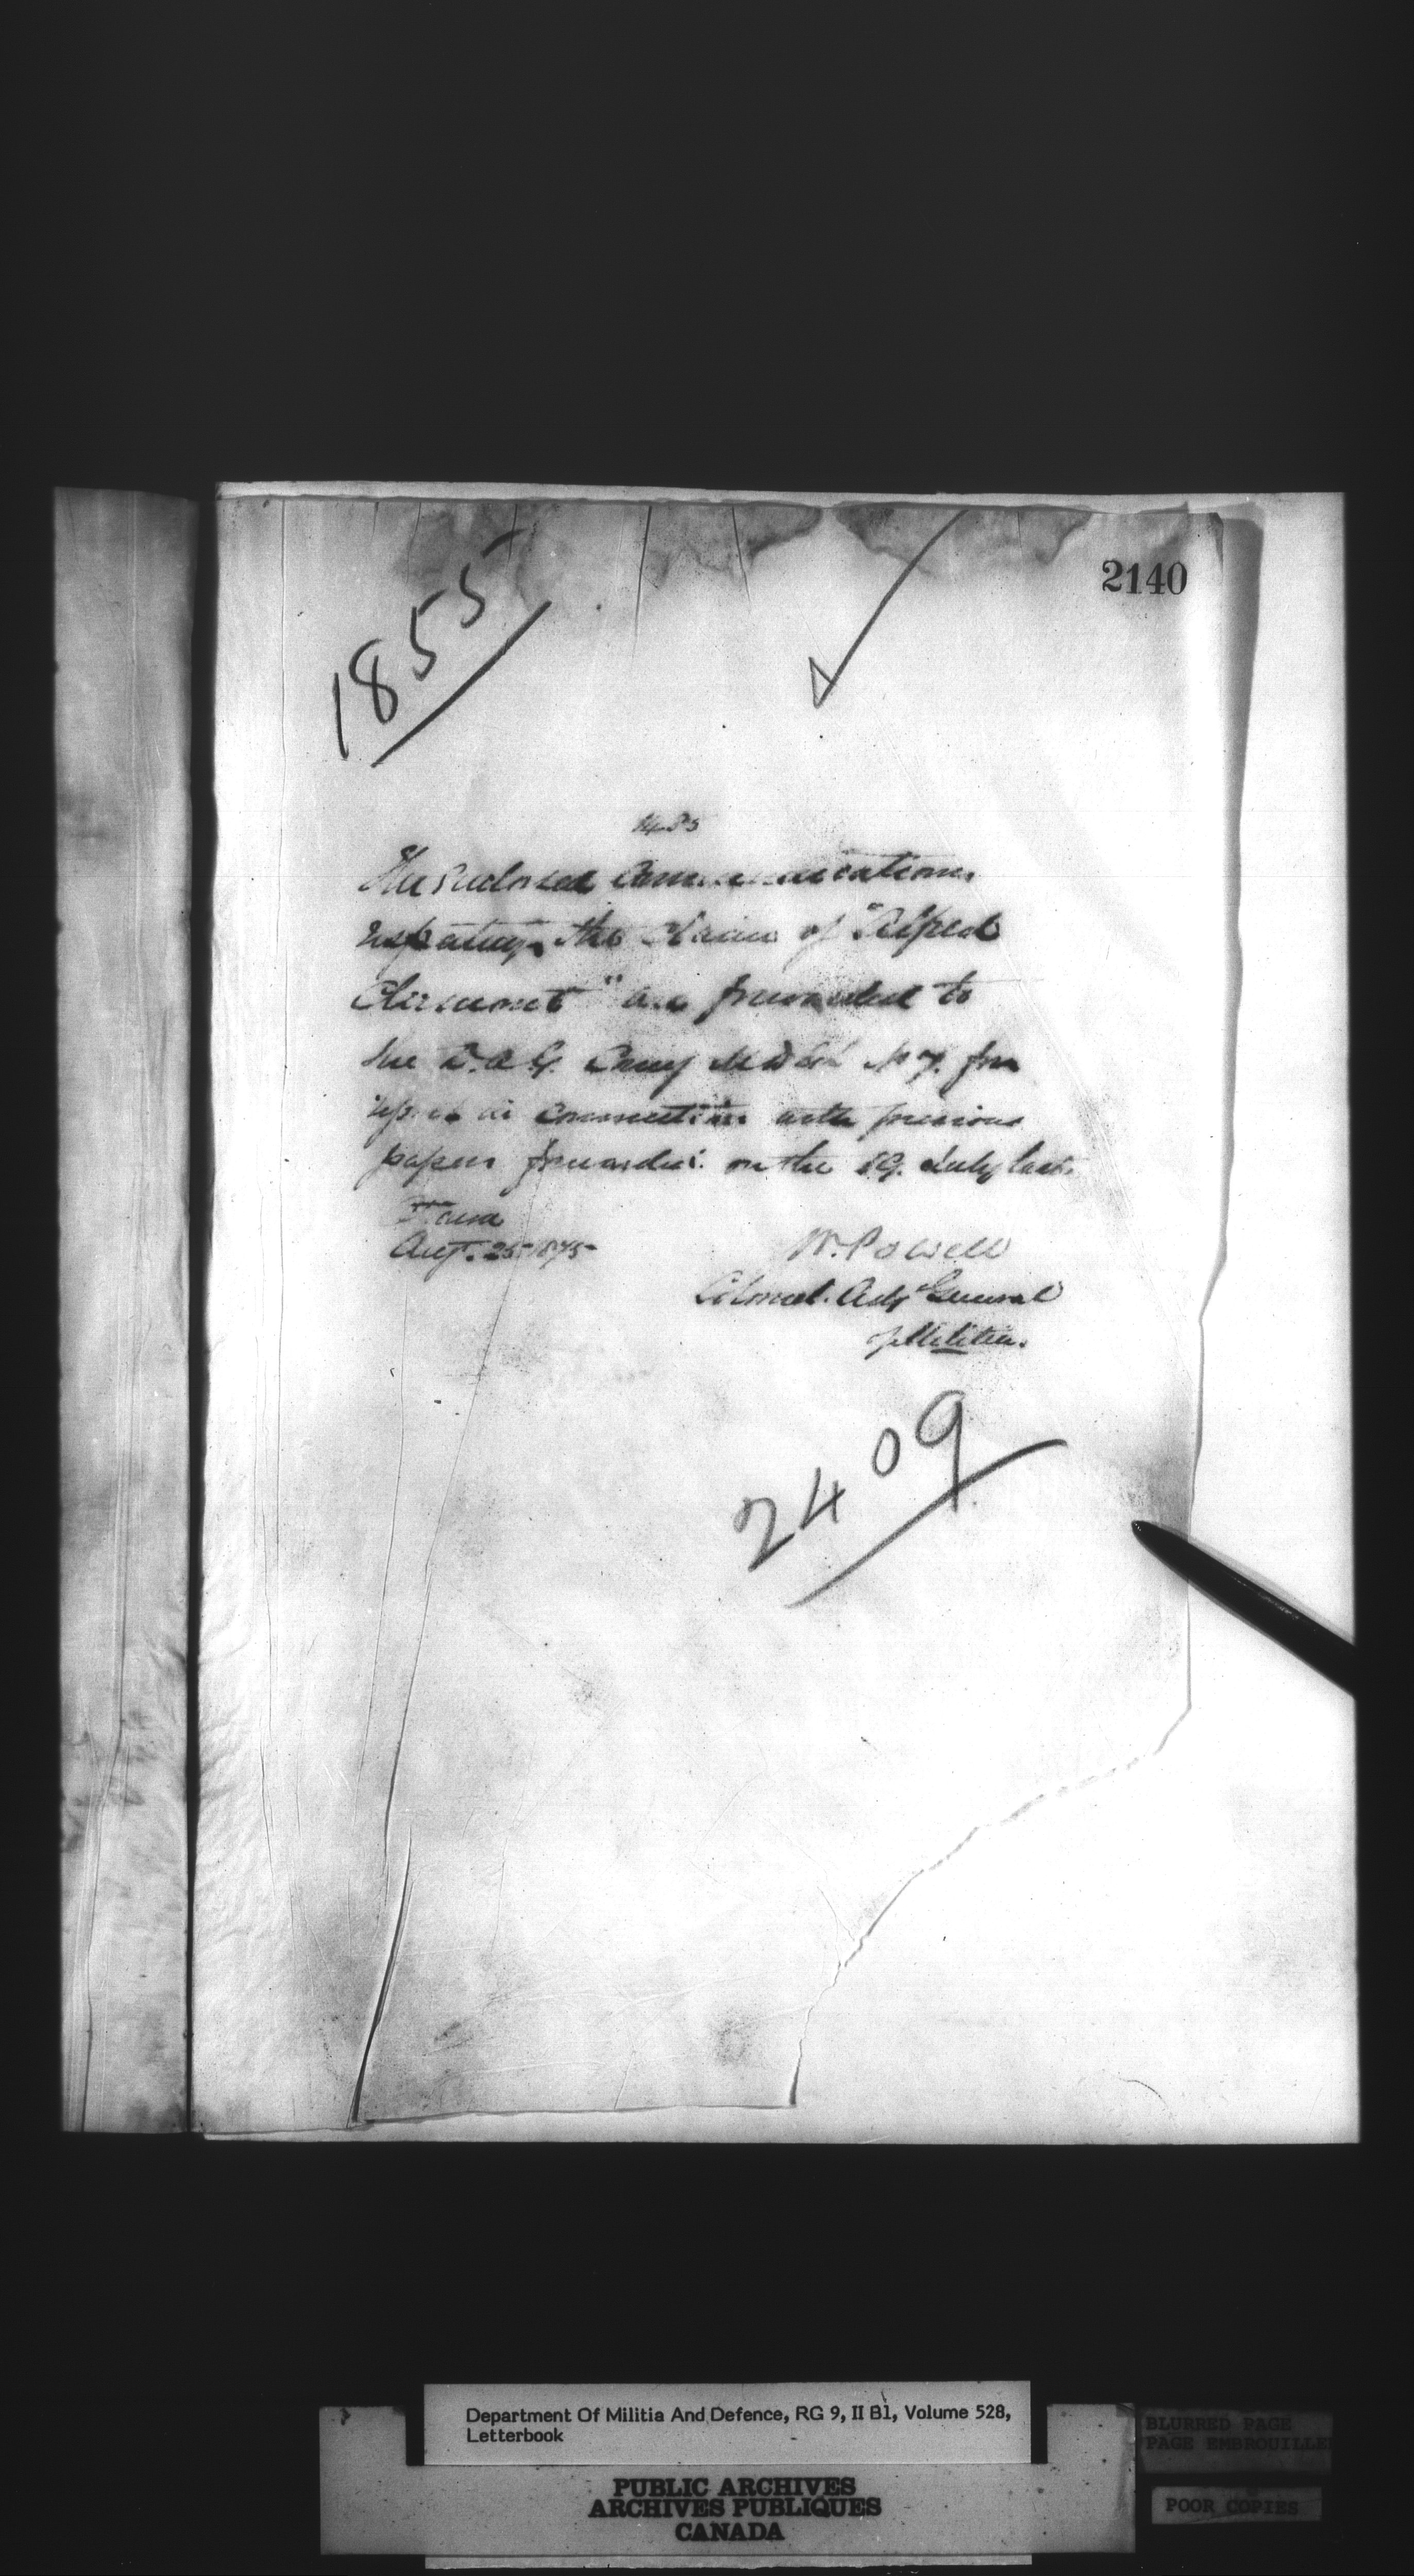 2140
1855
The Enclosed Communications
respecting the Claim of "Alfred
Clermont" are forwarded to
the D.A.G. Comg No 7. for
report in connection with previous
papers forwarded on the 19. July last.
Ottawa
Aug. 25 1875
W. Powell
Colonel. Adjt General
of Militia.
2409
Department Of Militia And Defence, RG 9, II B1, Volume 528,
Letterbook
PUBLIC ARCHIVES
ARCHIVES PUBLIQUES
CANADA
BLURRED PAGE
PAGE EMBROUILLE
POOR COPIES